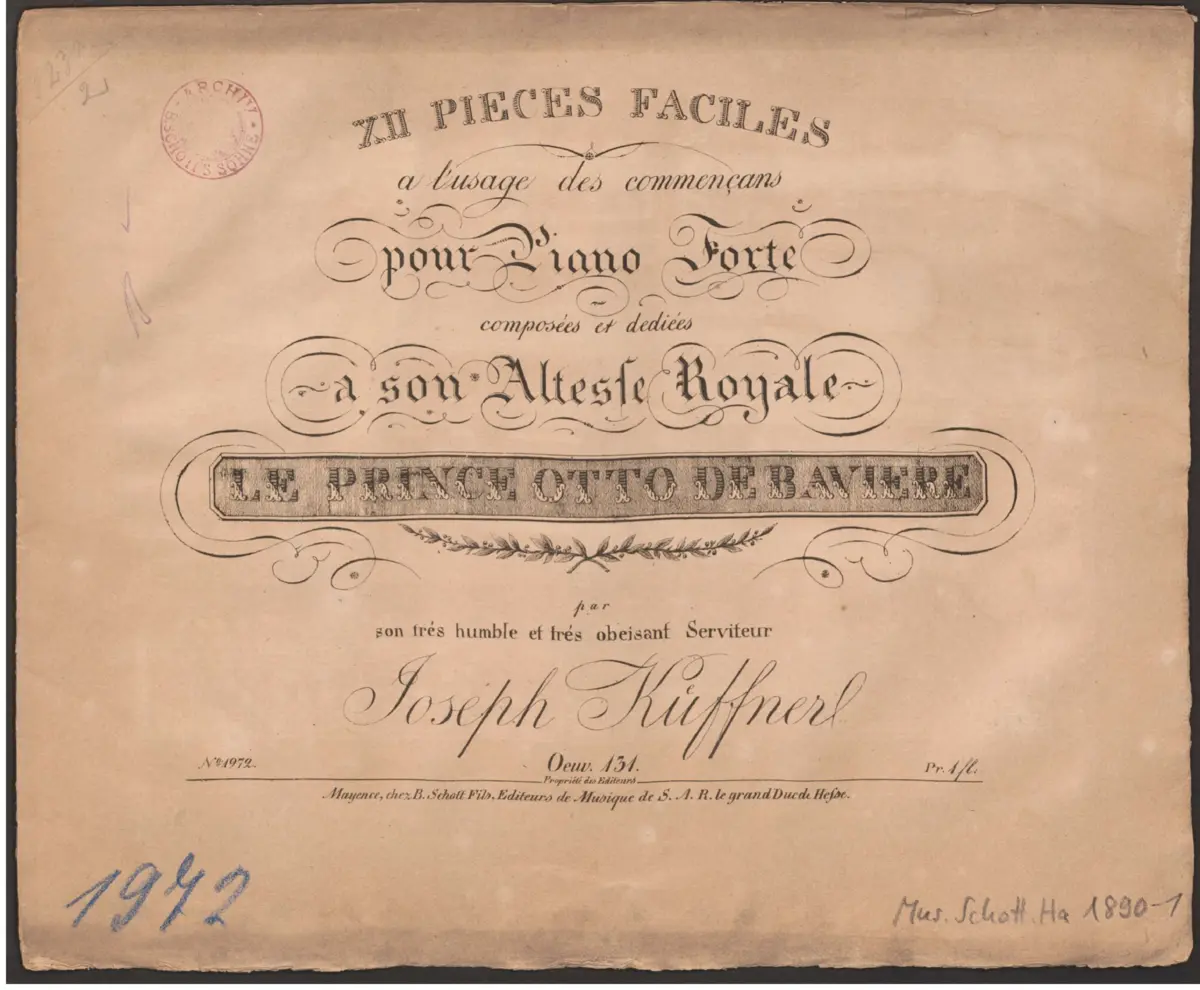 231
2
ARCHIV
B. SCHOTT'S SÖHNE
XII PIECES FACILES
a l'usage des commençans
pour Piano Forte
composées et dediées
a son Altesse Royale
LE PRINCE OTTO DE BAVIERE
par
son trés humble et trés obeisant Serviteur
Joseph Küffner
No. 1972.
Oeuv. 131.
Pr. 1 fl.
Propriété des Editeurs
Mayence, chez B. Schott Fils, Editeurs de Musique de S. A. R. le grand Duc de Hesse.
1972
Mus. Schott. Ha 1890-1